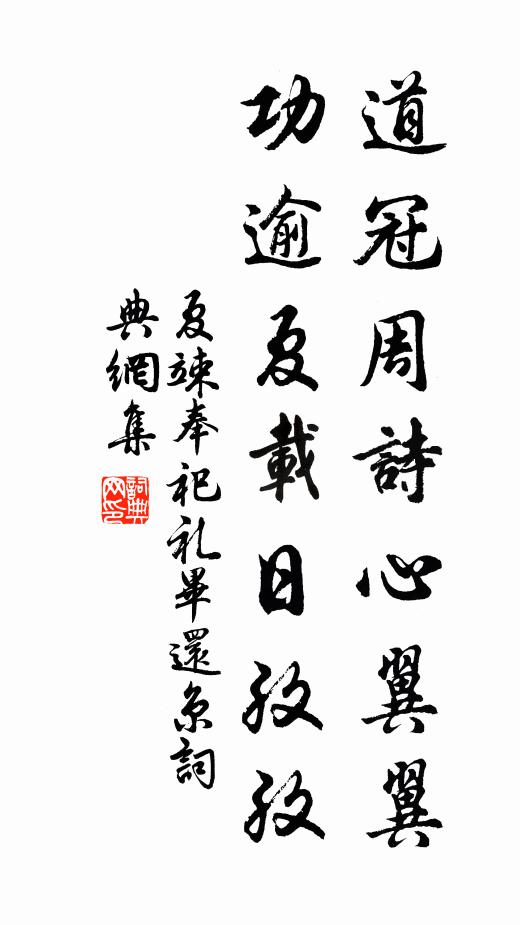 道冠周詩心翼翼
功逾夏載日孜孜
夏竦奉祀礼畢還京詞
典網集
詞典网印